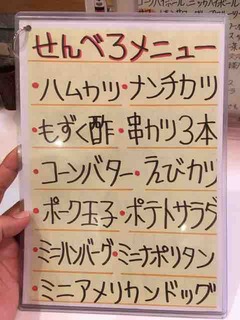 せんべろメニュー
・ハムカツ・ナンチカツ
・もずく酢・串カツ3本
・コーンバター・えびカツ
・ポーク玉子・ポテトサラダ
・ミニハンバーグ・ミニナポリタン
・ミニアメリカンドッグ